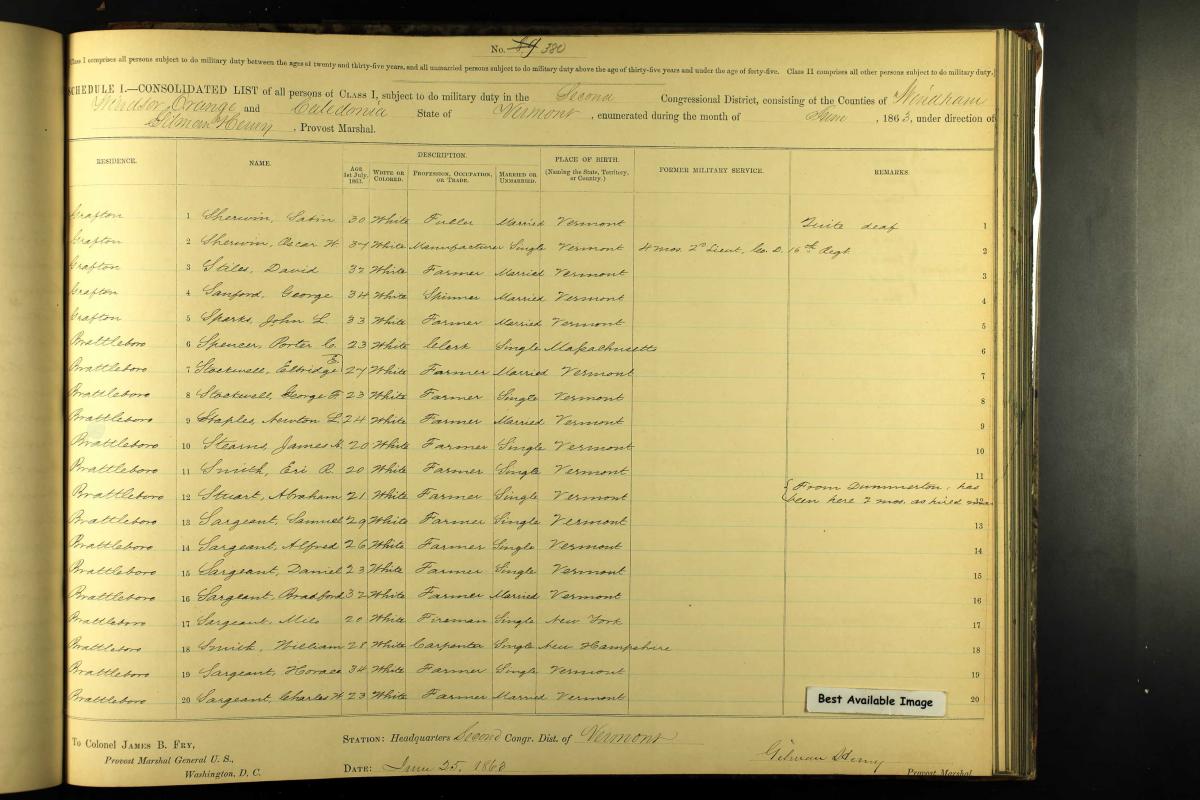 No. 89 380
Class I comprises all persons subject to do military duty between the ages of twenty and thirty-five years, and all unmarried persons subject to do military duty above the age of thirty-five years and under the age of forty-five. Class II comprises all other persons subject to do military duty.
SCHEDULE I.—CONSOLIDATED LIST of all persons of CLASS I, subject to do military duty in the Second Congressional District, consisting of the Counties of Windham
Windsor, Orange and Caledonia State of Vermont, enumerated during the month of June, 1863, under direction of
Gilman Henry, Provost Marshal.
RESIDENCE. NAME. DESCRIPTION. PLACE OF BIRTH. FORMER MILITARY SERVICE. REMARKS.
AGE 1st July, 1863. WHITE OR COLORED. PROFESSION, OCCUPATION, OR TRADE. MARRIED OR UNMARRIED. (Naming the State, Territory, or Country.)
Grafton 1 Sherwin, Sabin 30 White Fuller Married Vermont Quite deaf 1
Grafton 2 Sherwin, Oscar W 37 White Manufacturer Single Vermont 4 mos. 2d Lieut. Co. D. 16th Regt 2
Grafton 3 Stiles, David 32 White Farmer Married Vermont 3
Grafton 4 Sanford, George 34 White Spinner Married Vermont 4
Grafton 5 Sparks, John L. 33 White Farmer Married Vermont 5
Brattleboro 6 Spencer, Porter C. 23 White Clerk Single Massachusetts 6
Brattleboro 7 Stockwell, Elbridge E. 27 White Farmer Married Vermont 7
Brattleboro 8 Stockwell, George F 23 White Farmer Single Vermont 8
Brattleboro 9 Staples Newton L 24 White Farmer Married Vermont 9
Brattleboro 10 Stearns, James 20 White Farmer Single Vermont 10
Brattleboro 11 Smith, Eri R. 20 White Farmer Single Vermont 11
Brattleboro 12 Stuart, Abraham 21 White Farmer Single Vermont From Dummerston, has been here 2 mos. as hired man 12
Brattleboro 13 Sargeant, Samuel 29 White Farmer Single Vermont 13
Brattleboro 14 Sargeant, Alfred 26 White Farmer Single Vermont 14
Brattleboro 15 Sargeant, Daniel 23 White Farmer Single Vermont 15
Brattleboro 16 Sargeant, Bradford 32 White Farmer Married Vermont 16
Brattleboro 17 Sargeant, Milo 20 White Fireman Single New York 17
Brattleboro 18 Smith, William 28 White Carpenter Single New Hampshire 18
Brattleboro 19 Sargeant, Horace 34 White Farmer Single Vermont 19
Brattleboro 20 Sargeant, Charles W 23 White Farmer Married Vermont 20
Best Available Image
To Colonel JAMES B. FRY,
Provost Marshal General U. S.,
Washington, D. C.
STATION: Headquarters Second Congr. Dist. of Vermont
DATE: June 25, 1863
Gilman Henry
Provost Marshal